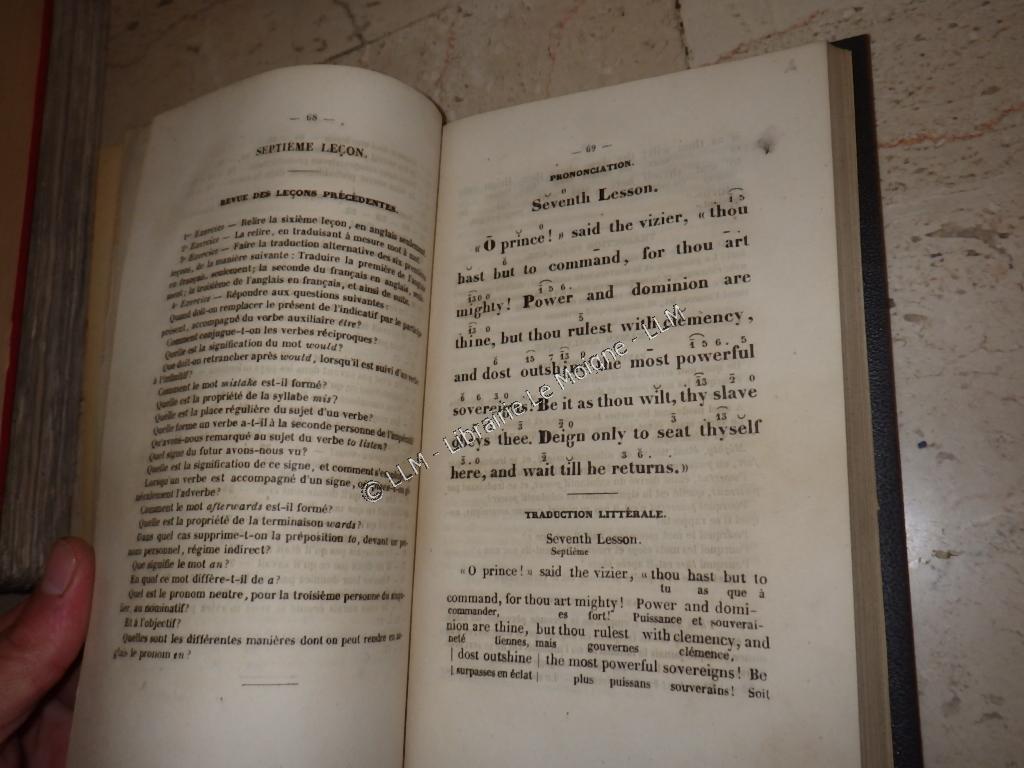 — 68 —
SEPTIÈME LEÇON.
REVUE DES LEÇONS PRÉCÉDENTES.
1er Exercice — Relire la sixième leçon, en anglais seulement.
2e Exercice — La relire, en traduisant à mesure mot à mot.
3e Exercice — Faire la traduction alternative des six premières
leçons, de la manière suivante : Traduire la première de l'anglais
en français, seulement; la seconde du français en anglais, seule-
ment; la troisième de l'anglais en français, et ainsi de suite.
4e Exercice — Répondre aux questions suivantes :
Quand doit-on remplacer le présent de l'indicatif par le participe
présent, accompagné du verbe auxiliaire être?
Comment conjugue-t-on les verbes réciproques?
Quelle est la signification du mot would?
Que doit-on retrancher après would, lorsqu'il est suivi d'un verbe
à l'infinitif?
Comment le mot mistake est-il formé?
Quelle est la propriété de la syllabe mis?
Quelle est la place régulière du sujet d'un verbe?
Quelle forme un verbe a-t-il à la seconde personne de l'impératif?
Qu'avons-nous remarqué au sujet du verbe to listen?
Quel signe du futur avons-nous vu?
Quelle est la signification de ce signe, et comment
Lorsqu'un verbe est accompagné d'un signe, où place-t-on gé-
néralement l'adverbe?
Comment le mot afterwards est-il formé?
Quelle est la propriété de la terminaison wards?
Dans quel cas supprime-t-on la préposition to, devant un pro-
nom personnel, régime indirect?
Que signifie le mot an?
En quel cas ce mot diffère-t-il de a?
Quel est le pronom neutre, pour la troisième personne du singu-
lier, au nominatif?
Et à l'objectif?
Quelles sont les différentes manières dont on peut rendre en an-
glais le pronom en?
— 69 —
PRONONCIATION.
Seventh Lesson.
« O prince! » said the vizier, « thou
hast but to command, for thou art
mighty! Power and dominion are
thine, but thou rulest with clemency,
and dost outshine the most powerful
sovereigns! Be it as thou wilt, thy slave
obeys thee. Deign only to seat thyself
here, and wait till he returns.»
TRADUCTION LITTÉRALE.
Seventh Lesson.
Septième
« O prince! » said the vizier, « thou hast but to
tu as que à
command, for thou art mighty! Power and domi-
commander, es fort! Puissance et souverai-
nion are thine, but thou rulest with clemency, and
neté tiennes, mais gouvernes clémence,
| dost outshine | the most powerful sovereigns! Be
| surpasses en éclat | plus puissans souverains! Soit
© LLM - Librairie Le Moigne - LLM